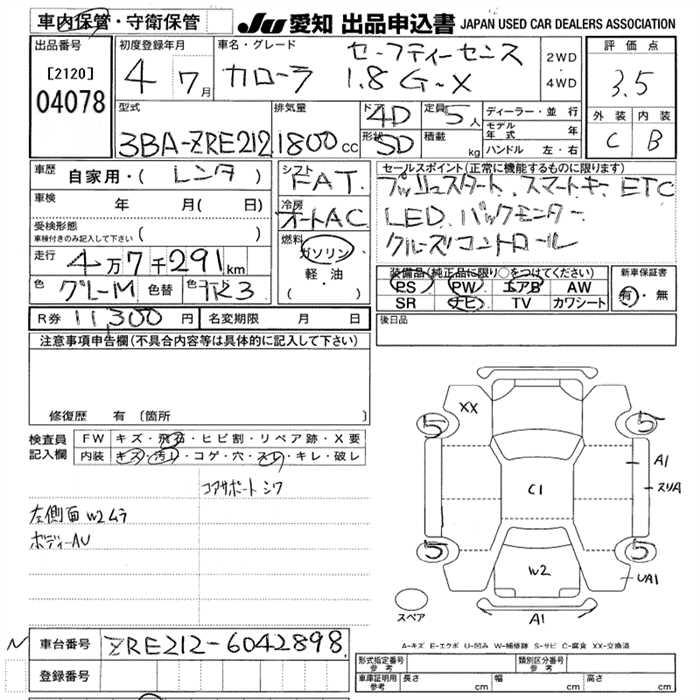 車内保管・守衛保管
JU 愛知 出品申込書 JAPAN USED CAR DEALERS ASSOCIATION
出品番号
[2120]
04078
初度登録年月
4 7月
車名・グレード
カローラ
セーフティーセンス
1.8 G-X
2WD
4WD
評価点
3.5
外装 内装
C B
型式
3BA-ZRE212
排気量
1800cc
ドア 4D
形状 SD
定員 5人
積載 kg
ディーラー・並行
モデル年式 年
ハンドル 左・右
車歴 自家用・(レンタ)
車検 年 月( 日)
受検形態
車検付きのみ記入して下さい ( )
走行 4万7千291km
色 グレーM 色替 色コード 1K3
シフト FAT
冷房 オートAC
燃料
ガソリン
軽・油
( ・ )
セールスポイント(正常に機能するものに限ります)
プッシュスタート、スマートキー ETC
LED バックモニター
クルーズコントロール
装備品(純正品に限り○をつけてください)
PS PW エアB AW
SR ナビ TV カワシート
新車保証書
有・無
R券 11,300円 名変期限 月 日
後日品
注意事項申告欄(不具合内容等は具体的に記入して下さい)
修復歴 有 〔箇所 〕
検査員記入欄
FW キズ・飛石・ヒビ割・リペア跡・X要
内装 キズ・汚レ・コゲ・穴・スレ・キレ・破レ
コアサポートシワ
左側面W2ムラ
ボディーAU
XX
5 5
A1
スリA
C1
5 5
W2
UA1
スペア
A1
A-キズ E-エクボ U-凹み W-補修跡 S-サビ C-腐食 XX-交換済
N 車台番号 ZRE212-6042898
登録番号
型式指定番号 参考
類別区分番号 参考
車庫証明用 参考 長さ cm 幅 cm 高さ cm